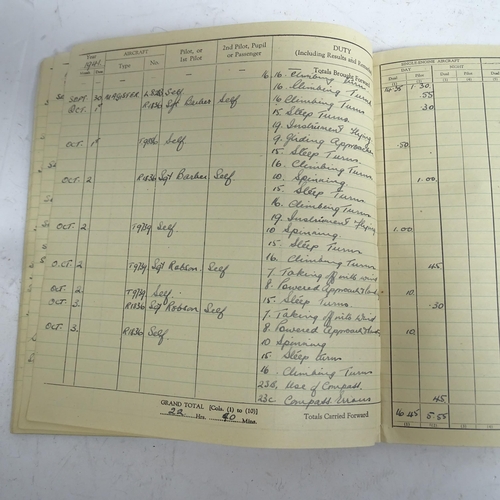 Year AIRCRAFT Pilot, or 1st Pilot 2nd Pilot, Pupil or Passenger DUTY (Including Results and
Type No.
Totals Brought
SINGLE-ENGINE AIRCRAFT
DAY NIGHT
Dual Pilot Dual Pilot Dual
SEPT. 30 MAGISTER Self. 16. Climbing Turns
16. Climbing Turns
OCT. 1st R1836 Sgt Barber Self 16. Climbing Turns
15. Steep Turns.
19. Instrument Flying
9. Gliding Approaches
OCT. 1st Self. 15. Steep Turns.
16. Climbing Turns
OCT. 2 R1836 Sgt Barber Self 10. Spinning.
15. Steep Turns.
16. Climbing Turns
19. Instrument Flying
OCT. 2 Self. 10 Spinning.
15. Steep Turns.
16. Climbing Turns
OCT. 2 Sgt Robson. Self 7. Taking off into wind
8. Powered Approach
OCT. 2 Self. 15. Steep Turns
OCT. 3. R1836 Sgt Robson Self 7. Taking off into Wind
8. Powered Approach
OCT. 3. R1836 Self. 10 Spinning
15 Steep turns
16. Climbing Turns
Use of Compass.
23c Compass
1.30
.55
.30
.50
1.00
1.00
.45
.10
.30
.10
.45
GRAND TOTAL [Cols. (1) to (10)]
22 Hrs. 40 Mins.
Totals Carried Forward
16.45 5.55